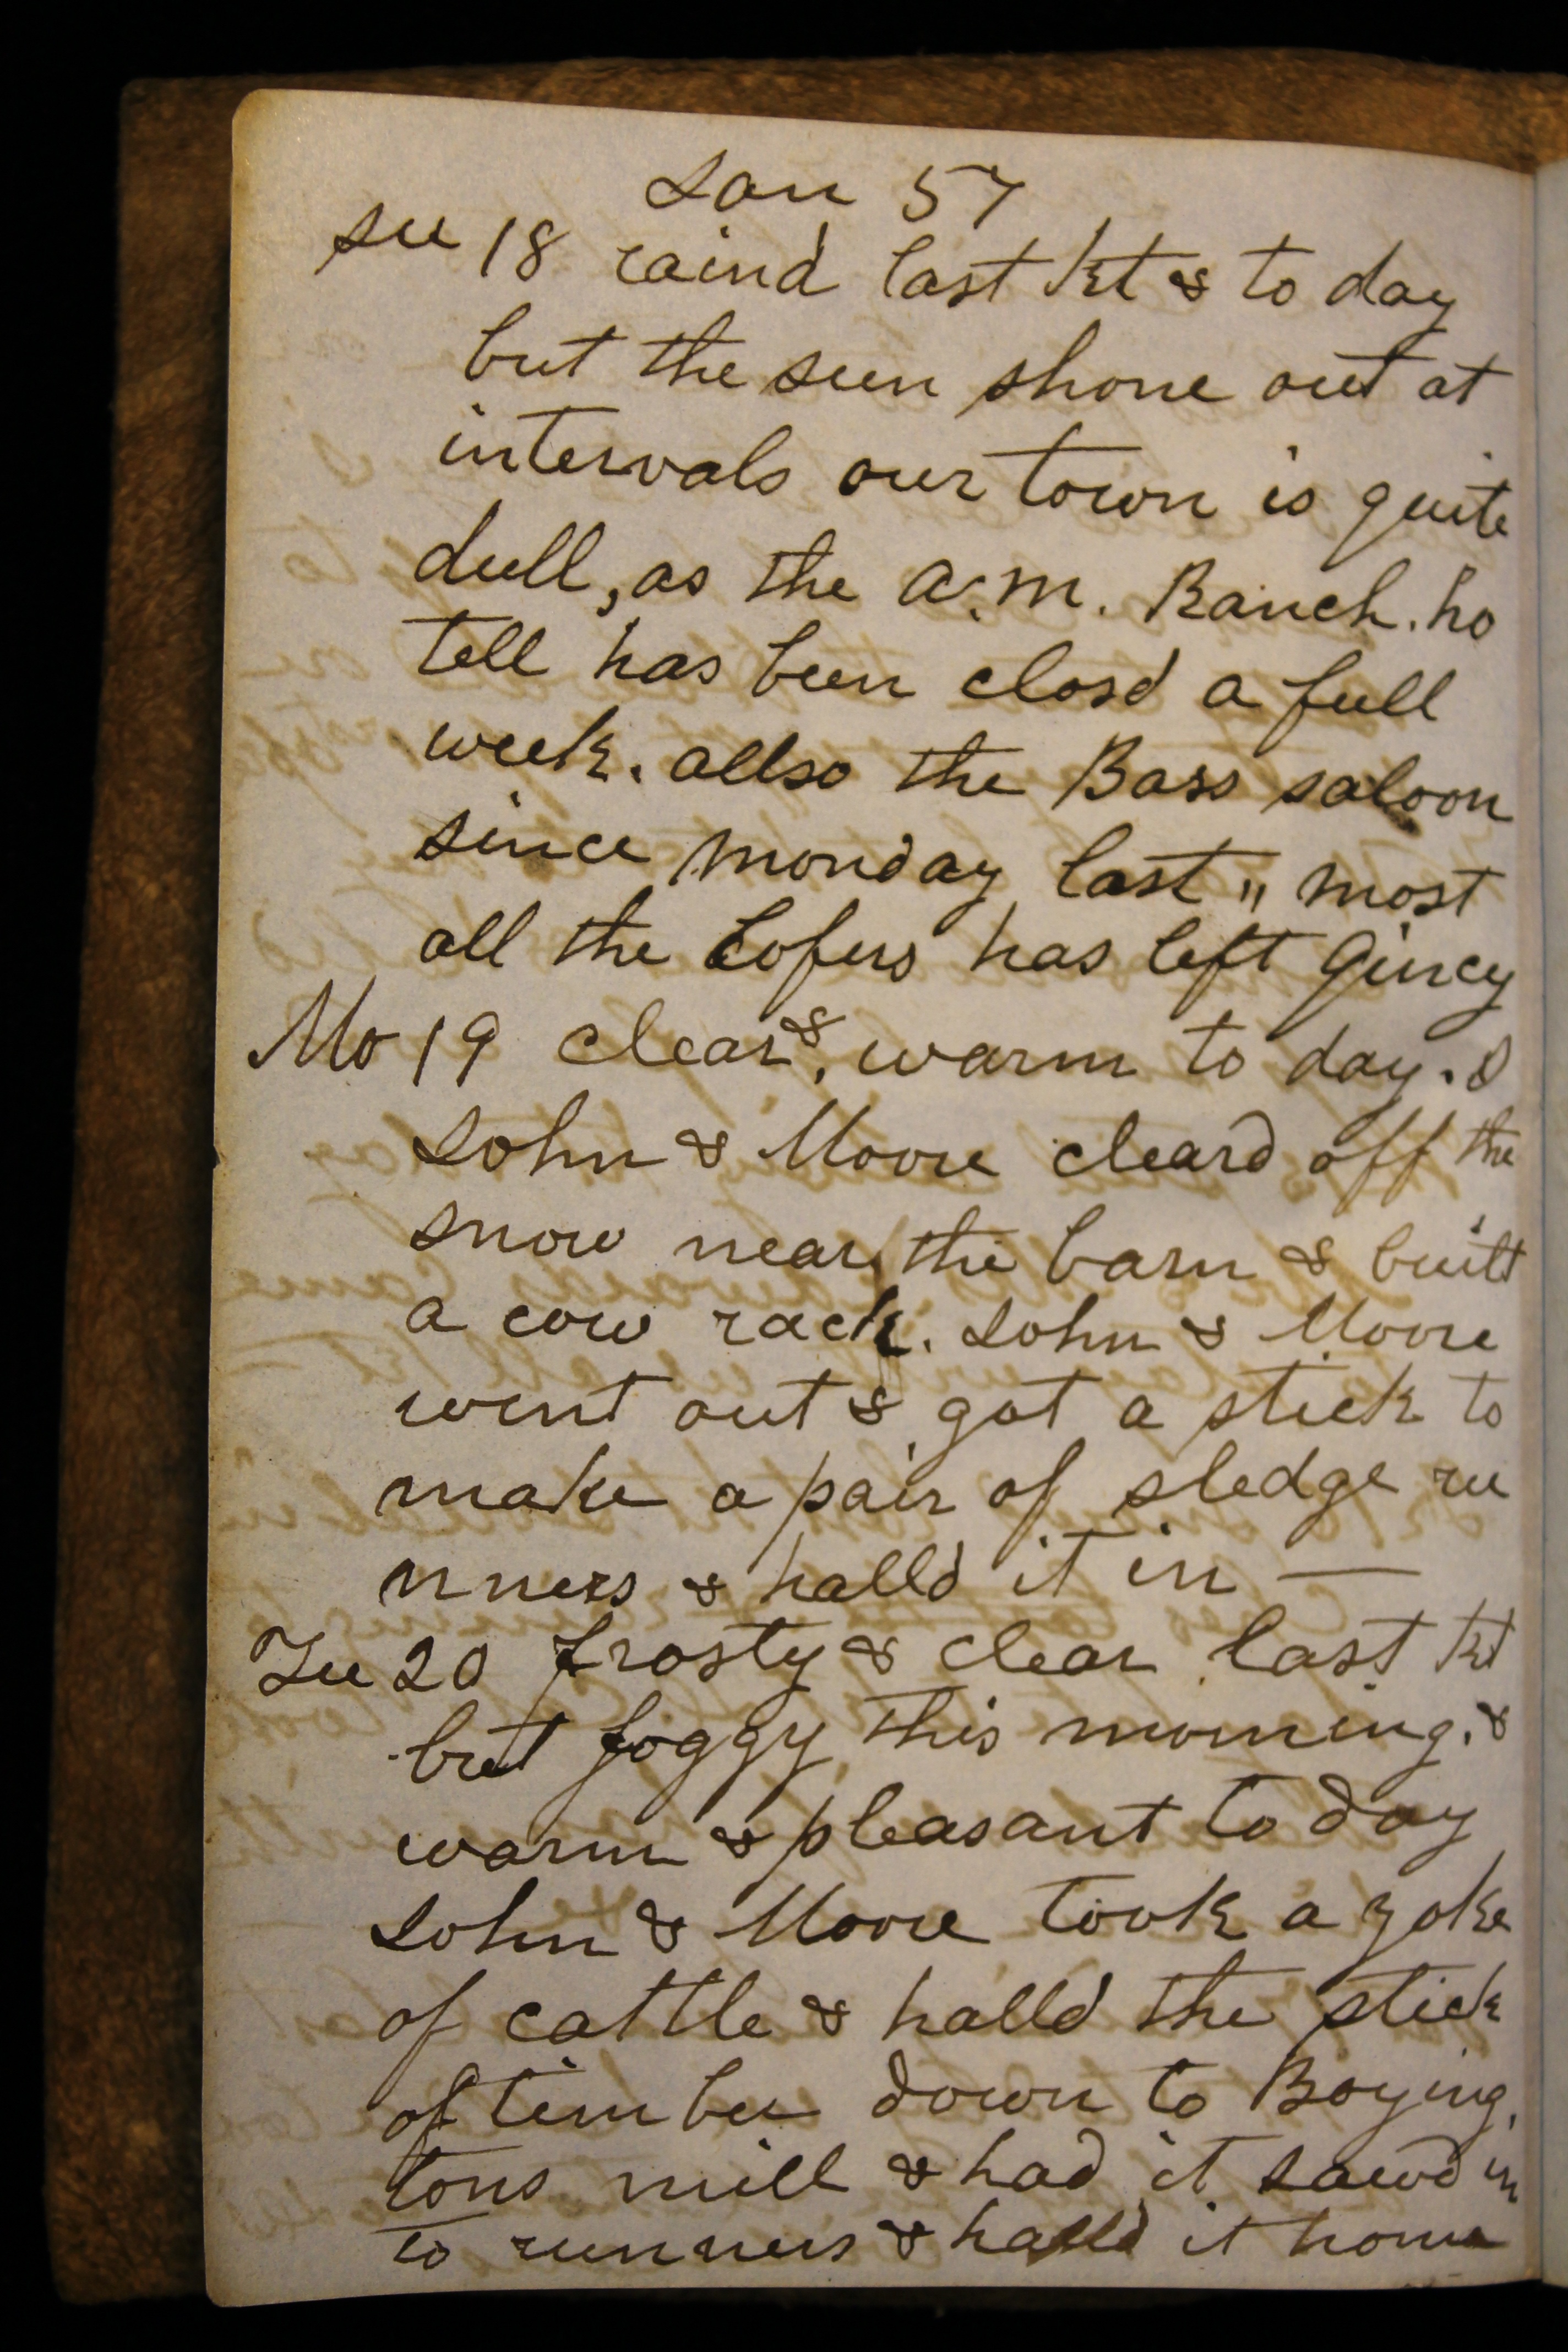 Jan 57
su 18 raind last kt & to day
but the sun shone out at
intervals our town is quite
dull, as the a.m. Ranch. ho
tell has been closd a full
week. allso the Bass saloon
since monday last " most
all the Lofers has left Qincy
Mo 19 clear &, warm to day. I
John & Moore cleard off the
snow near the barn & built
a cow rack. John & Moore
went out & got a stick to
make a pair of sledge ru
nners & halld it in —
Tu 20 frosty & clear last kt
but foggy this morning. &
warm & pleasant to day
John & Moore took a yoke
of cattle & halld the stick
of timber down to Boying,
tons mill & had it sawd in
to runners & halld it home